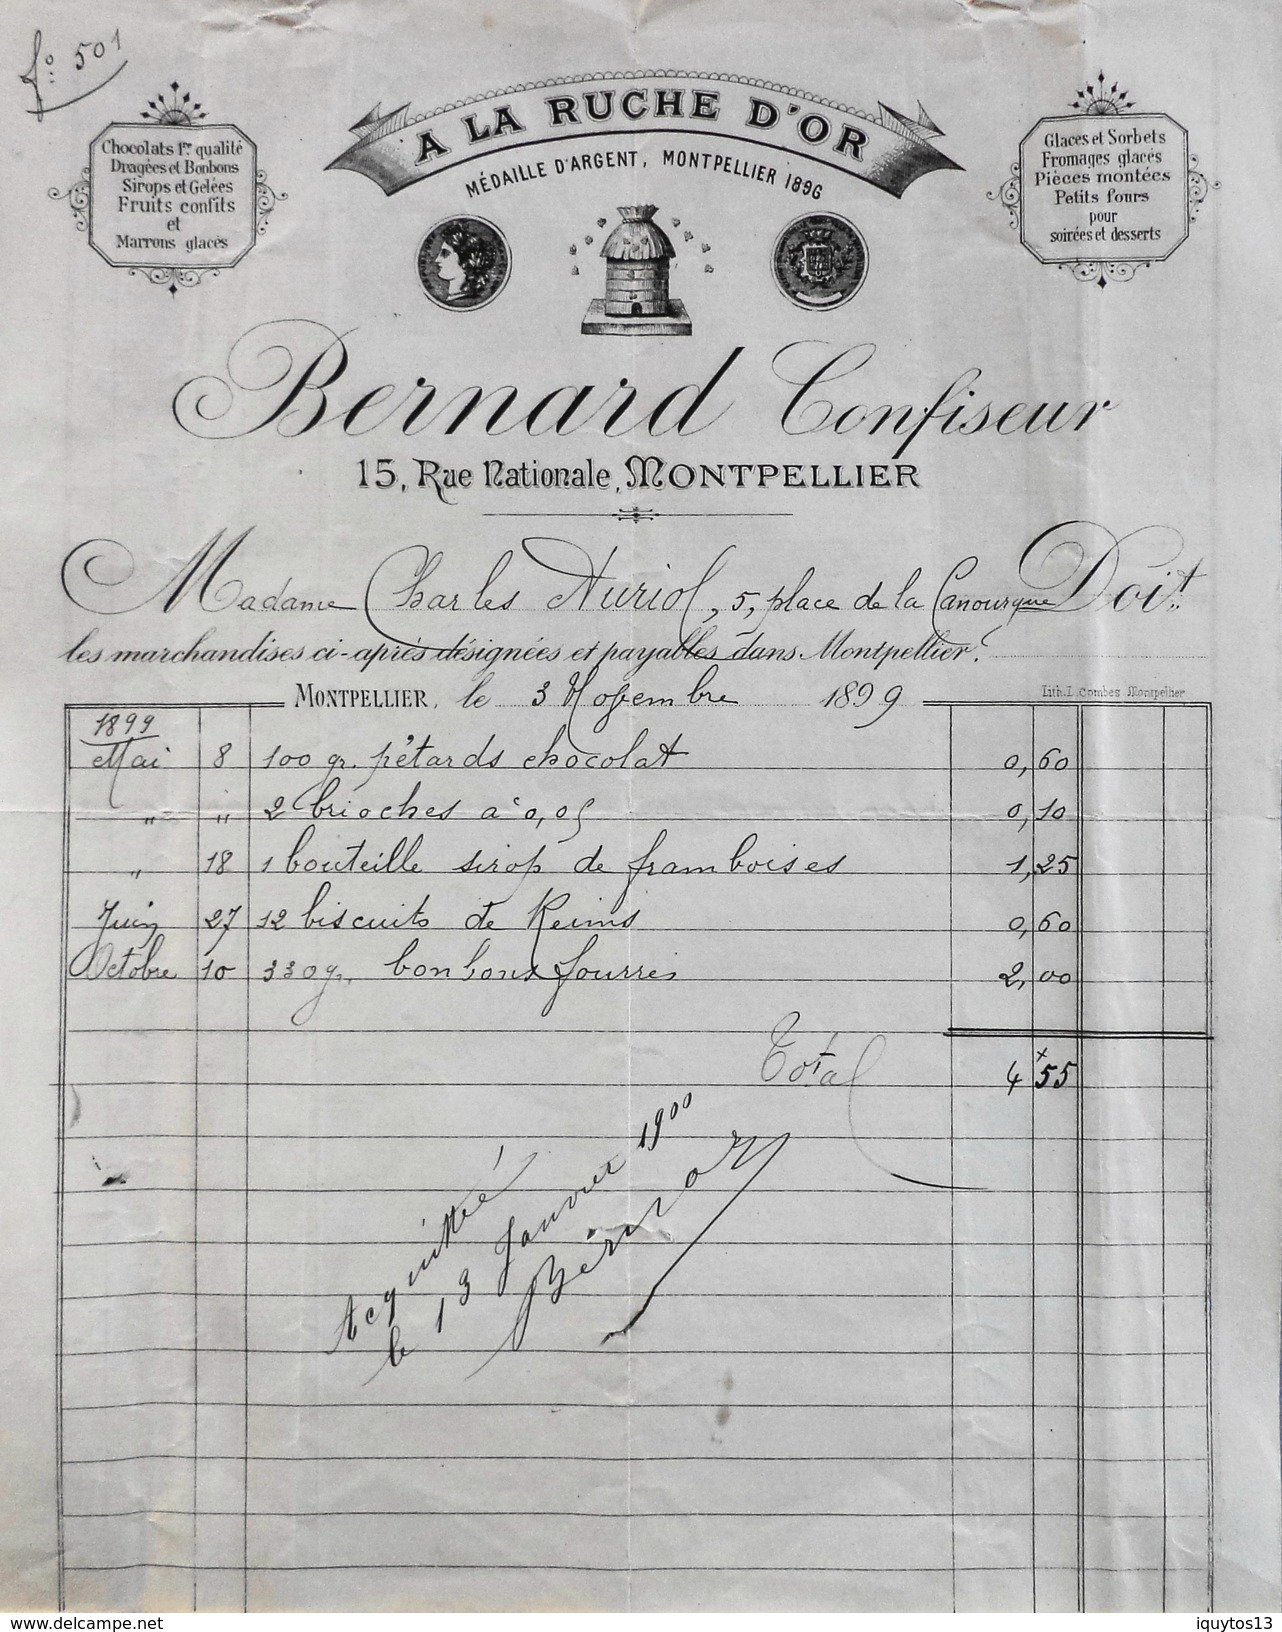 fo: 501
A LA RUCHE D'OR
MÉDAILLE D'ARGENT, MONTPELLIER 1896
Chocolats 1re qualité
Dragées et Bonbons
Sirops et Gelées
Fruits confits
et
Marrons glacés
Glaces et Sorbets
Fromages glacés
Pièces montées
Petits fours
pour
soirées et desserts
Bernard Confiseur
15, Rue Nationale, MONTPELLIER
Madame Charles Auriol, 5, place de la Canourgue Doit
les marchandises ci-après désignées et payables dans Montpellier.
MONTPELLIER, le 3 Novembre 1899
Lith. L. Combes Montpellier
1899
Mai 8 100 gr. pétards chocolat 0,60
" " 2 brioches à 0,05 0,10
" 18 1 bouteille sirop de framboises 1,25
Juin 27 12 biscuits de Reims 0,60
Octobre 10 330 gr. bonbons fourrés 2,00
Total 4 55
Acquitté
le 13 Janvier 1900
Bernard
www.delcampe.net
iquytos13